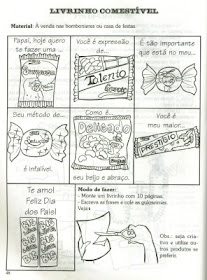 LIVRINHO COMESTÍVEL
Material: À venda nas bombonieres ou casa de festas.
Papai, hoje quero
te fazer uma ...
Você é expressão
de...
Talento
É tão importante
que está no meu...
Seu método de...
Sedução
é infalível.
Como é...
Delicado
seu beijo e abraço.
Você é
meu maior...
PRESTÍGIO
Te amo!
Feliz Dia
dos Pais!
Modo de fazer:
- Monte um livrinho com 10 páginas.
- Escreva as frases e cole as guloseimas.
Veja:
Obs.: seja cria-
tivo e utilize ou-
tros produtos se
preferir.